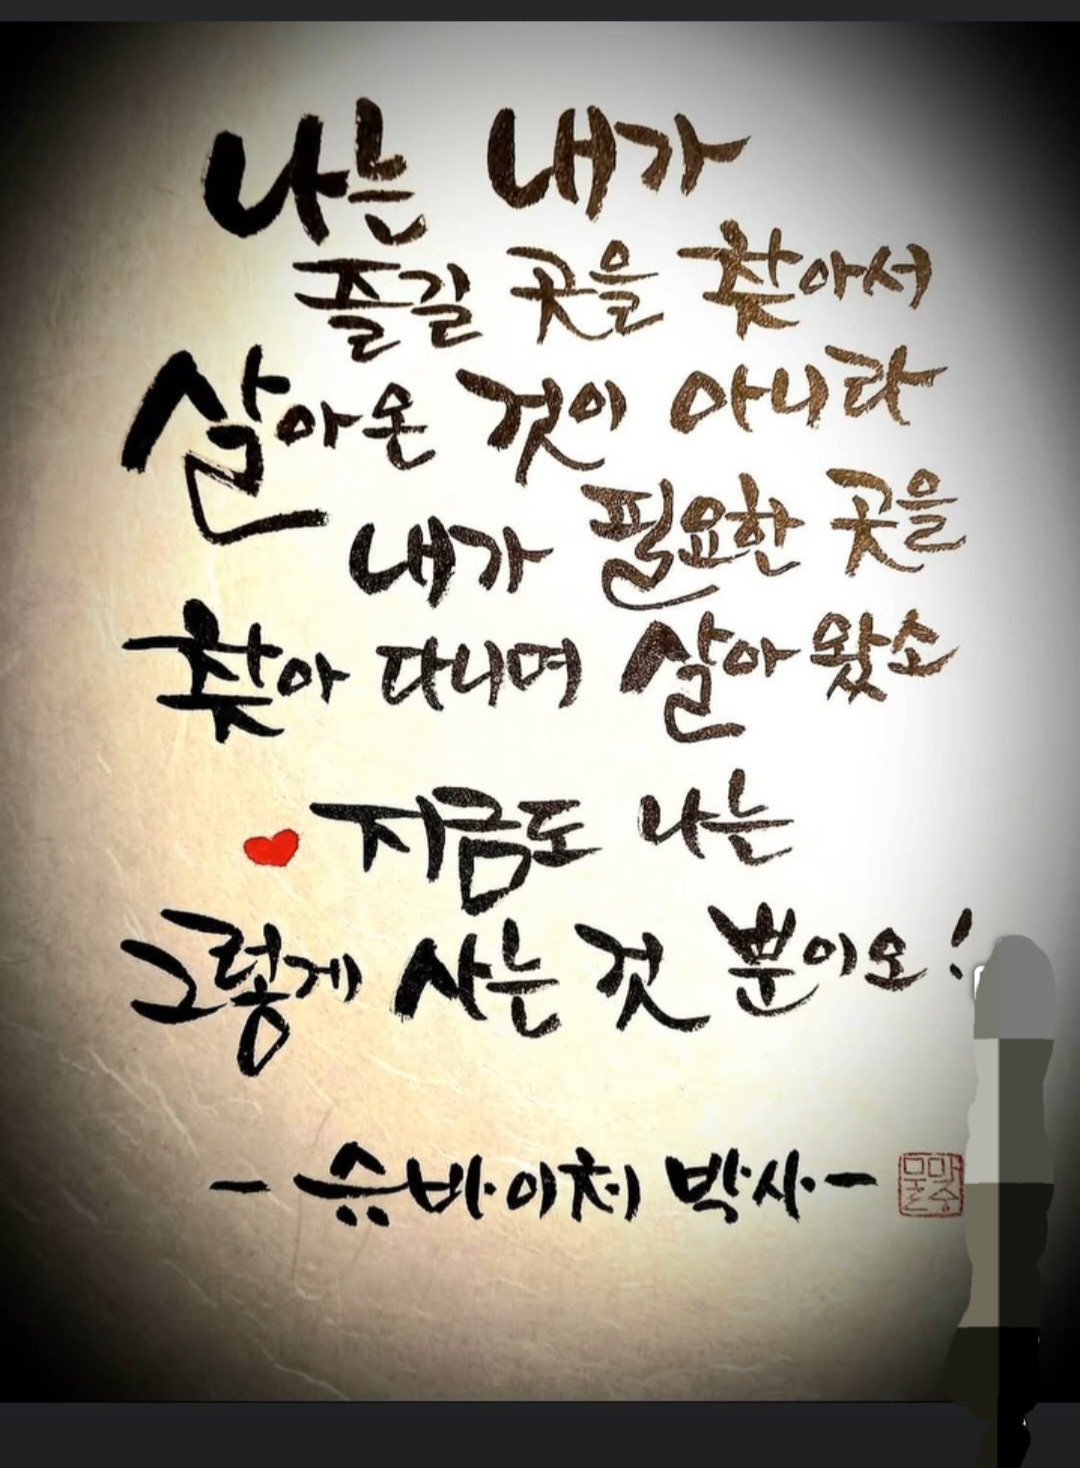 나는 내가
즐길 곳을 찾아서
살아온 것이 아니라
내가 필요한 곳을
찾아 다니며 살아 왔소
지금도 나는
그렇게 사는 것 뿐이오!
- 슈바이처 박사 -